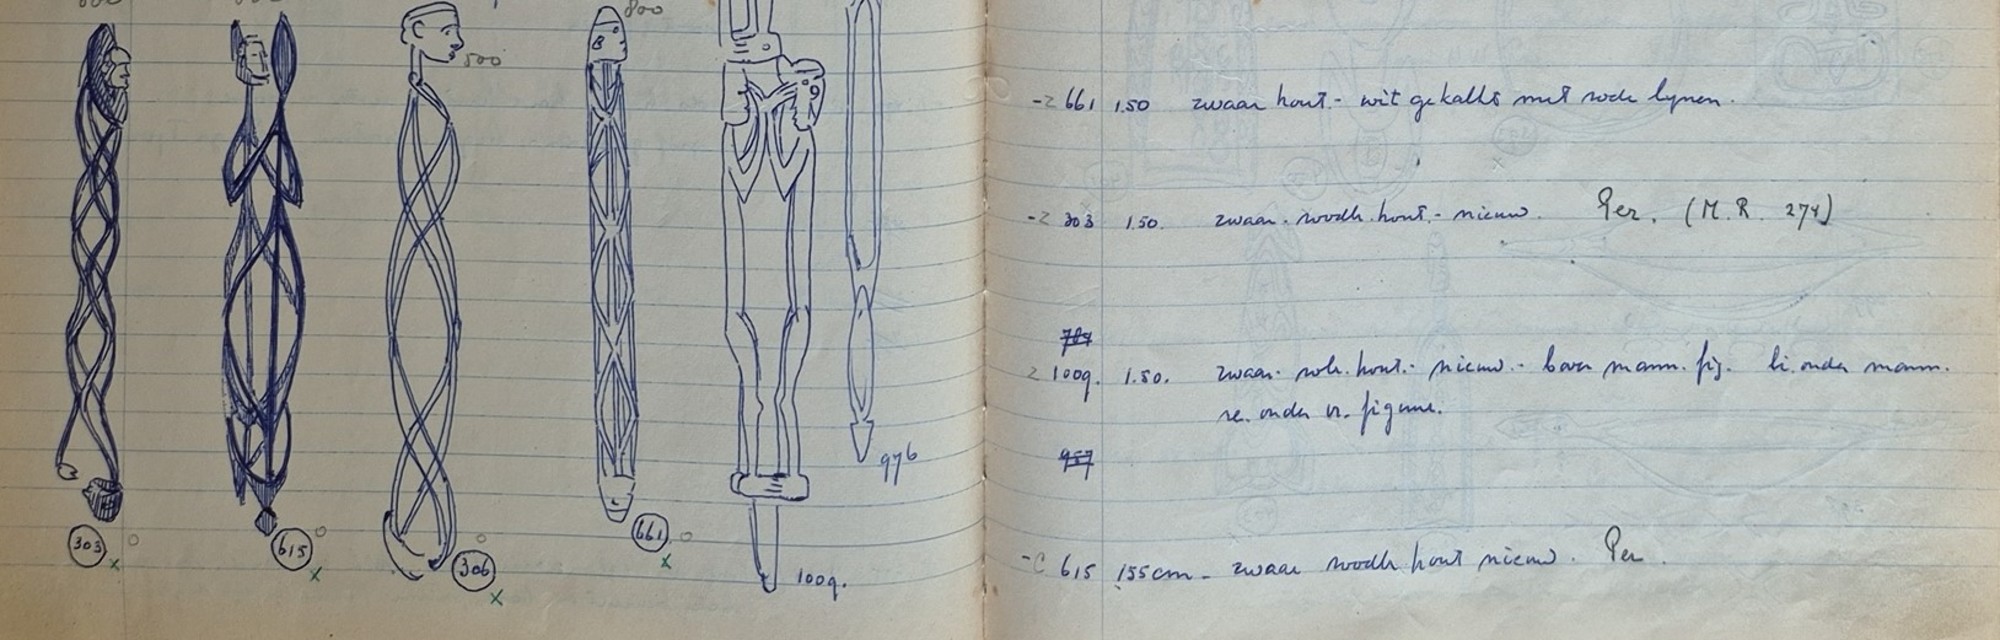 800
500
303
615
306
661
1009.
976
-2 661 1.50 zwaar hout. - wit gekalkt met rode lynen.
-2 303 1.50. zwaar. roodh. hout. - nieuw. Per. (M.R. 274)
784
2 1009. 1.50. zwaar. rode. hout. - nieuw. - boven mann. fig. li. onder mann.
re. onder vr. figuur.
957
-2 615 155cm - zwaar roodh hout nieuw. Per.